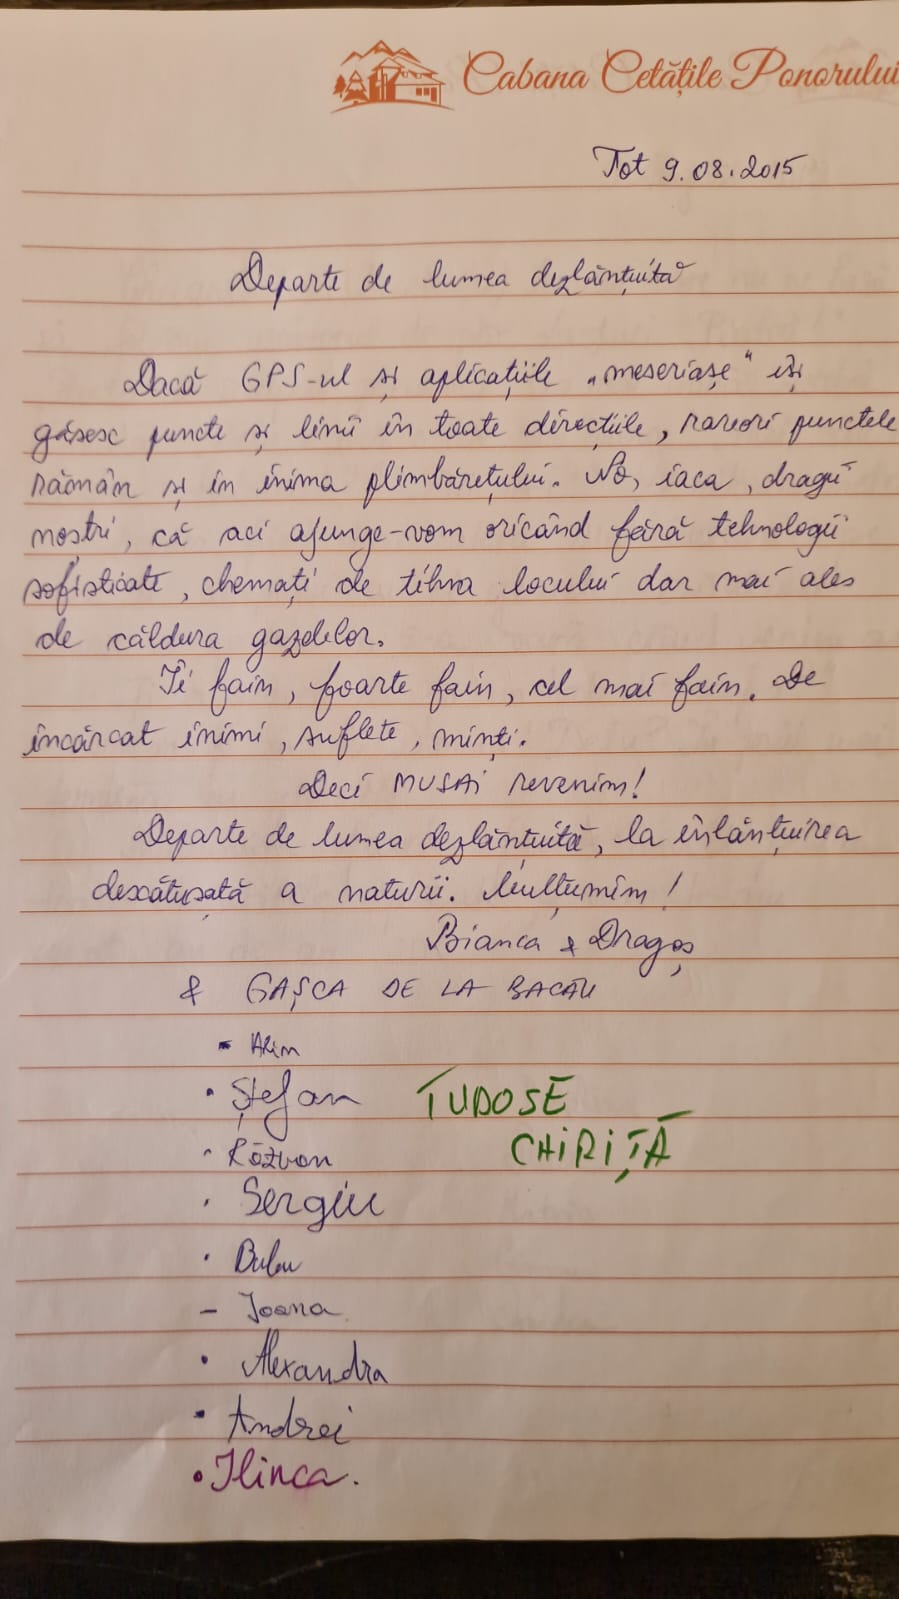 Cabana Cetățile Ponorului
Tot 9.08.2015
Departe de lumea dezlănțuită
Dacă GPS-ul și aplicațiile „meseriașe" își
găsesc puncte și linii în toate direcțiile, rareori punctele
rămân și in inima plimbărețului. No, iaca, dragii
noștri, că aci ajunge-vom oricând fără tehnologii
sofisticate, chemați de tihna locului dar mai ales
de căldura gazdelor.
Îi fain, foarte fain, cel mai fain. De
încărcat inimi, suflete, minți.
Deci MUSAI revenim!
Departe de lumea dezlănțuită, la înlănțuirea
descătușată a naturii. Mulțumim!
Bianca & Dragoș
& GAȘCA DE LA BACĂU
- Alin
• Ștefan TUDOSE
CHIRIȚĂ
• Răzvan
• Sergiu
• Bubu
- Ioana
• Alexandra
• Andrei
• Ilinca.